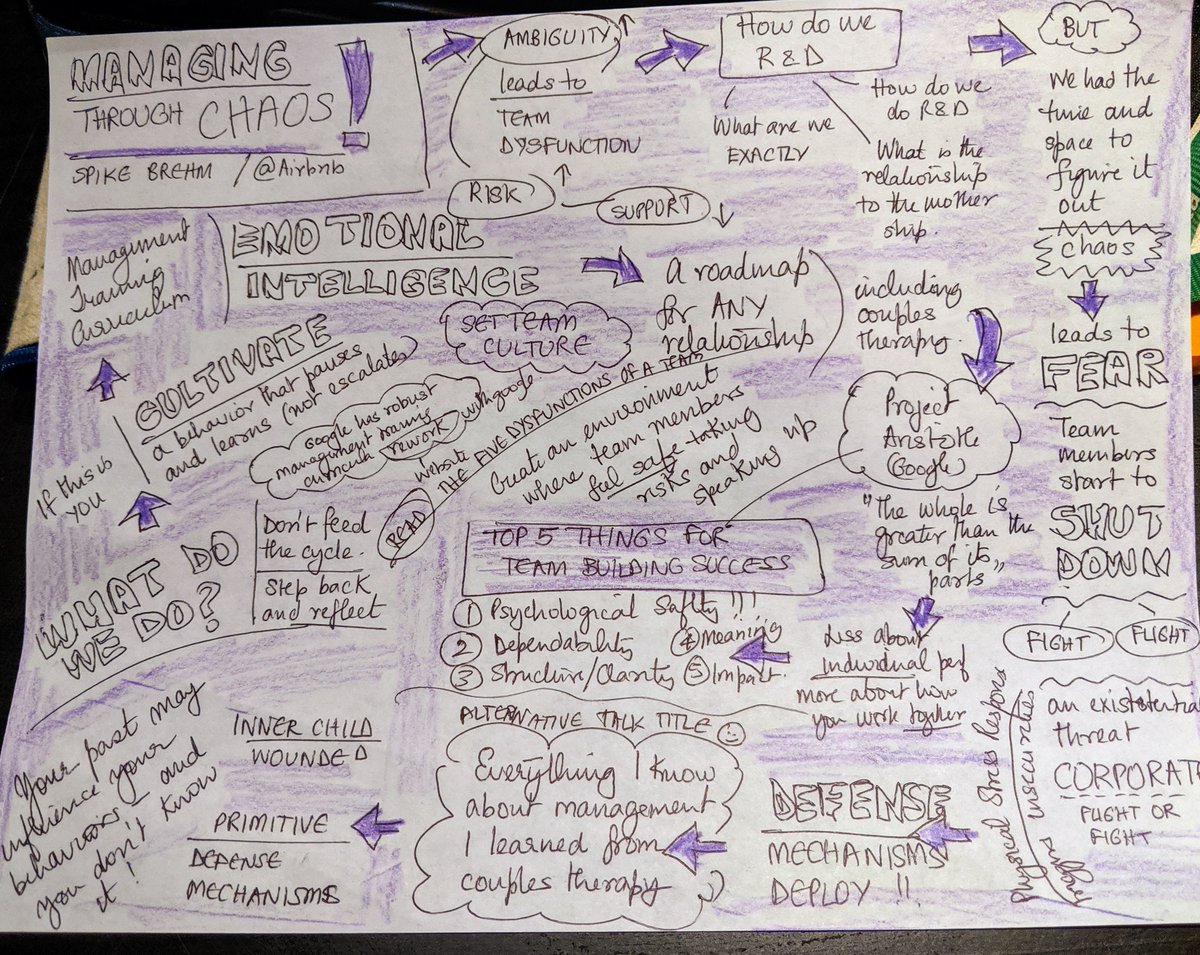 MANAGING
THROUGH CHAOS !
SPIKE BREHM / @Airbnb
AMBIGUITY
leads to
TEAM
DYSFUNCTION
RISK
SUPPORT
How do we
R&D
What are we
EXACTLY
How do we
do R&D
What is the
relationship
to the mother
ship.
BUT
We had the
time and
space to
figure it
out
chaos
leads to
FEAR
Team
members
start to
SHUT
DOWN
FIGHT
FLIGHT
an existential
threat
CORPORAT
FLIGHT OR
FIGHT
Physical Stress Respons
insecurities
DEFENSE
MECHANISMS
DEPLOY !!
ALTERNATIVE TALK TITLE
Everything I know
about management
I learned from
couples therapy
PRIMITIVE
DEFENSE
MECHANISMS
INNER CHILD
WOUNDED
Your past may
influence your
behaviors - and
you don't know
it !
WHAT DO
WE DO?
Don't feed
the cycle.
Step back
and reflect
If this is
you
CULTIVATE
a behavior that pauses
and learns (not escalates)
Management
Training
Curriculum
Google has robust
management training
curricula
rework with google
website
READ
THE FIVE DYSFUNCTIONS OF A TEAM
EMOTIONAL
INTELLIGENCE
SET TEAM
CULTURE
A roadmap
for ANY
relationship
including
couples
therapy.
Create an environment
where team members
feel safe taking
risks and
speaking up
Project
Aristotle
(Google)
"The whole is
greater than the
sum of its
parts"
Less about
individual perf
more about how
you work together
TOP 5 THINGS FOR
TEAM BUILDING SUCCESS
1 Psychological Safety !!!
2 Dependability
3 Structure/Clarity
4 Meaning
5 Impact.